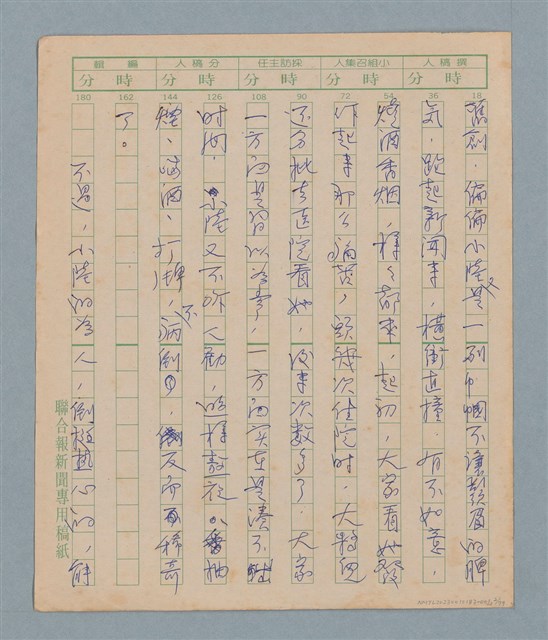 撰稿人 小組召集人 採訪主任 分稿人 編輯
時 分 時 分 時 分 時 分 時 分
18 36 54 72 90 108 126 144 162 180
舊創．偏偏小陸又是一副巾幗不讓鬚眉的脾
氣．跑起新聞來，橫衝直撞．有不如意，
燒酒香烟，樣々都來．起初，大家看她發
作起來那么痛苦，頭幾次住院時．大夥兒
還分批去医院看她．後來次數多了．大家
一方面是習以為常，一方面實在是湊不出
时间．小陸又不听人勸，這样熬夜、抽
煙、喝酒、打牌，不病倒，反而稀奇
了。
不過，小陸的為人，倒挺熱心的，能
聯合報新聞專用稿紙